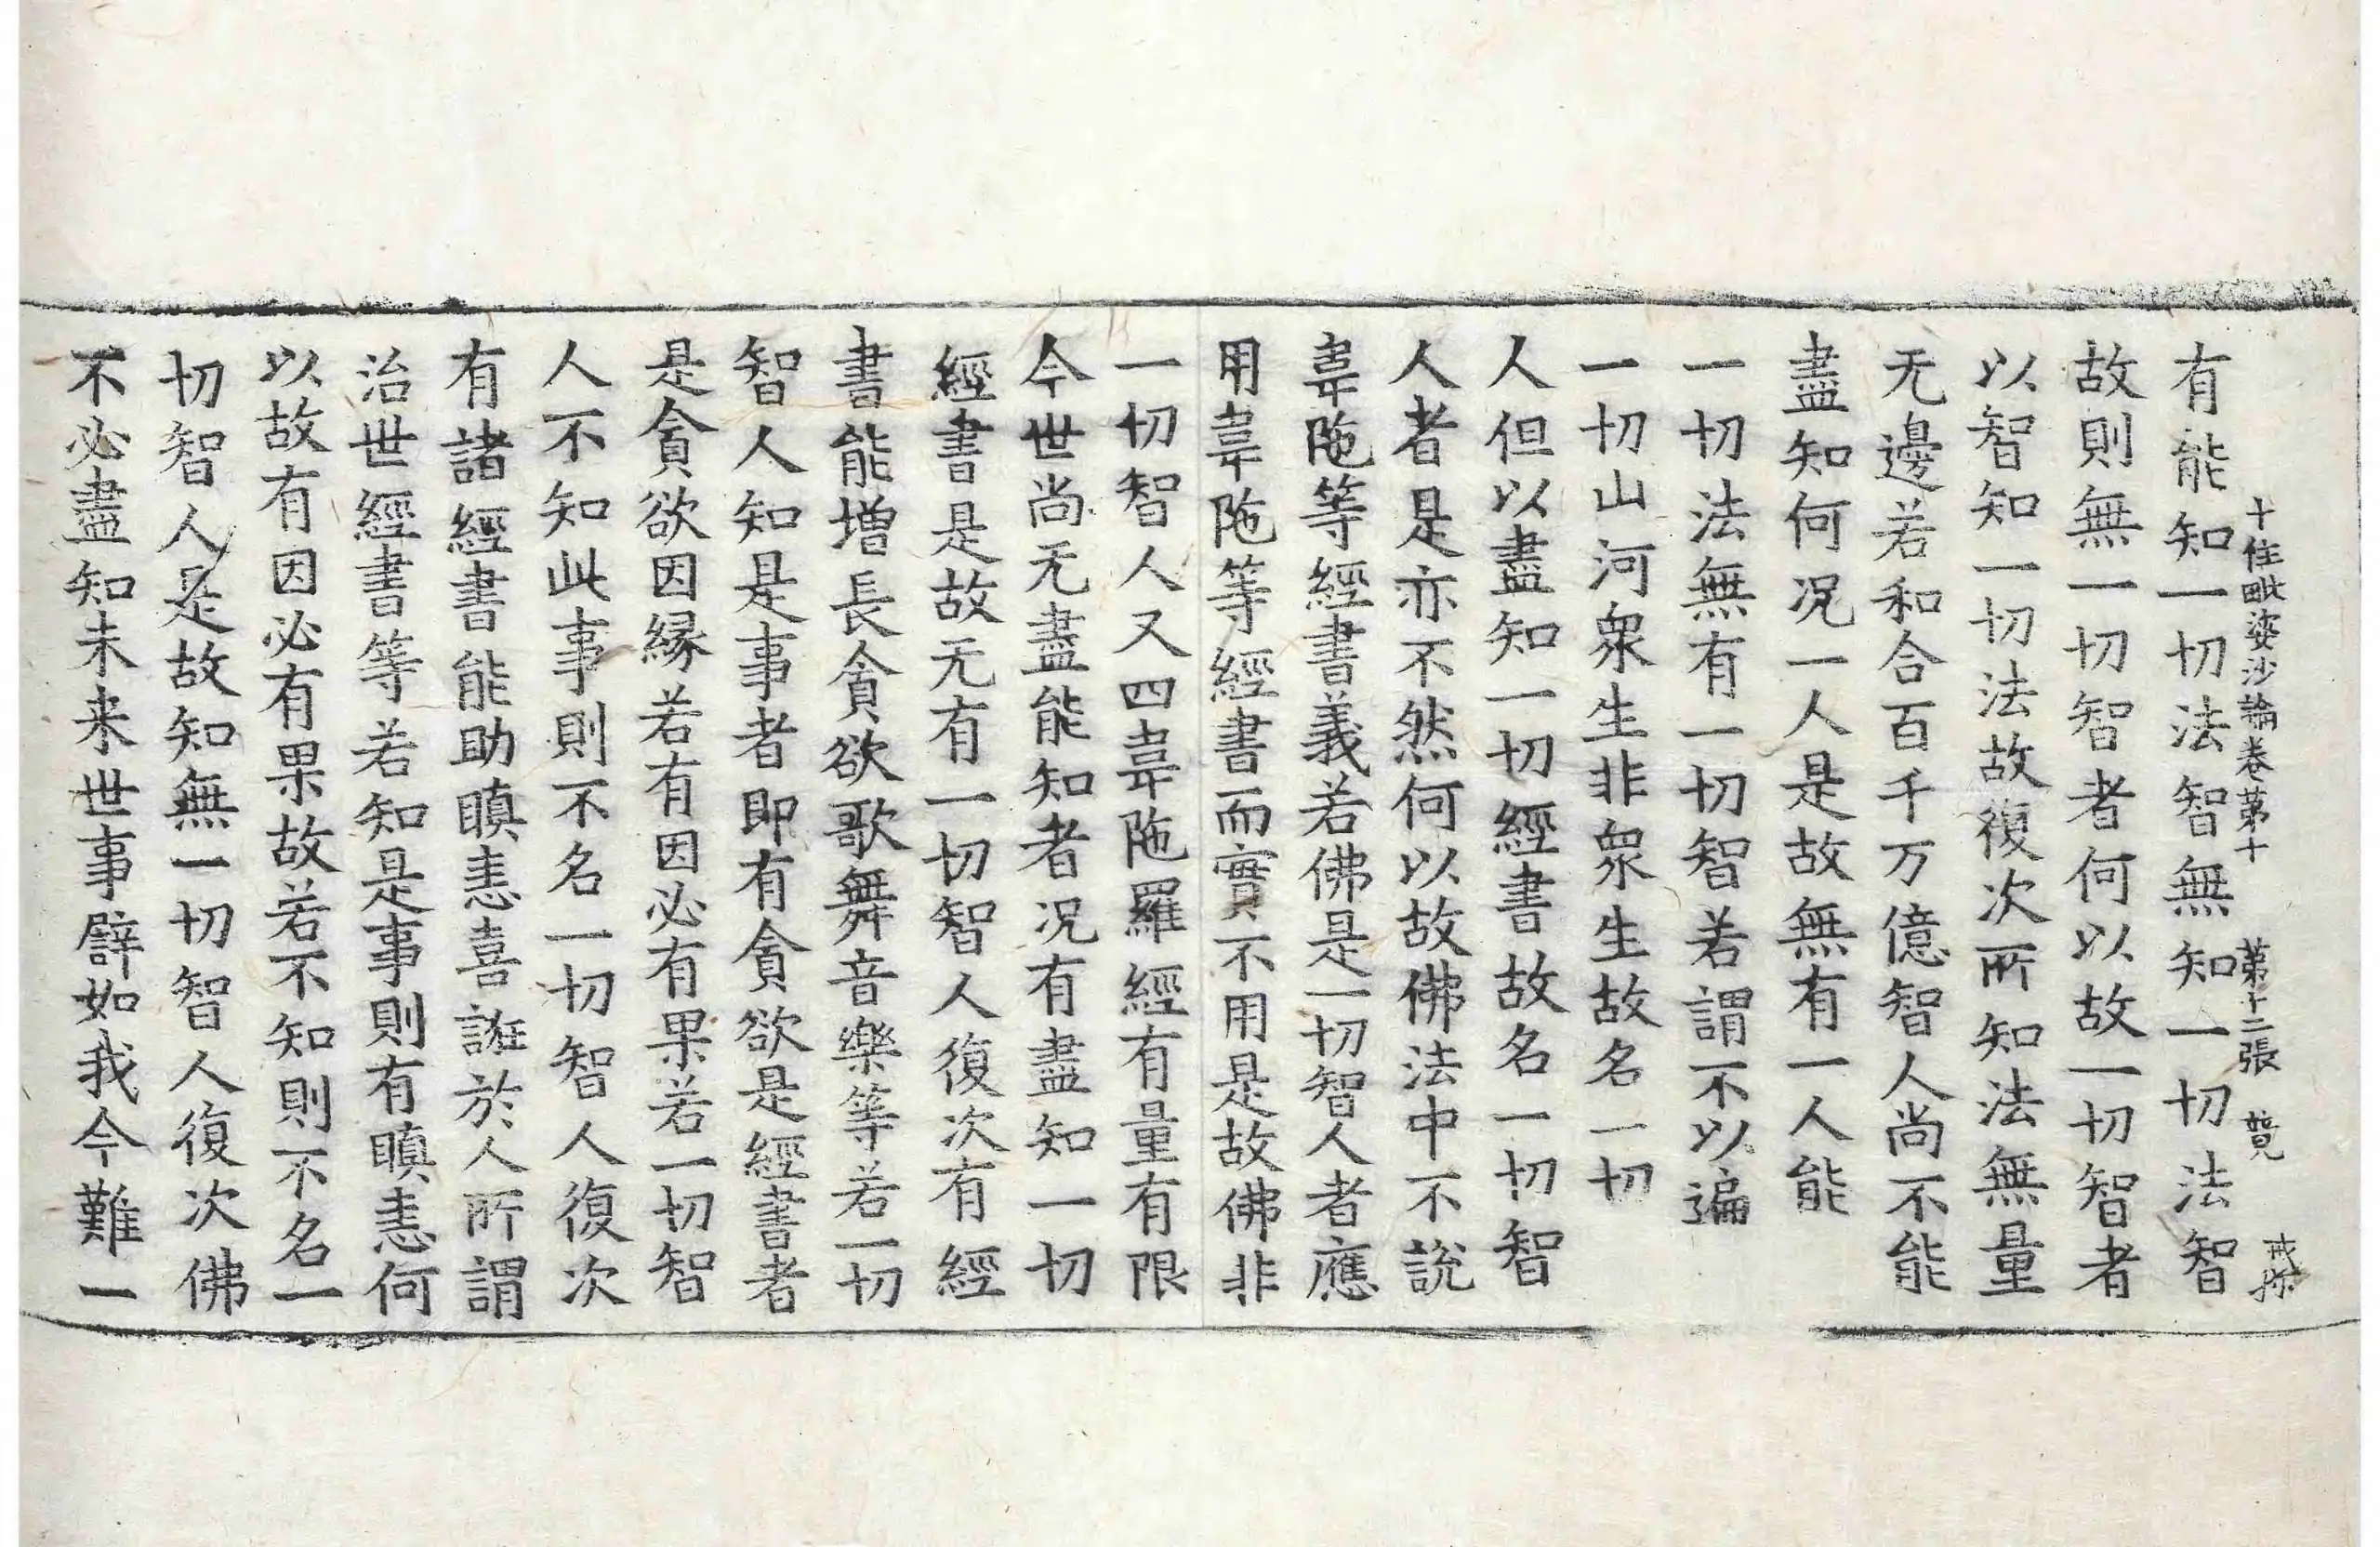 十住毗婆沙論卷苐十 苐十二張 競
有能知一切法智無知一切法智
故則無一切智者何以故一切智者
以智知一切法故復次所知法無量
无邊若和合百千万億智人尚不能
盡知何况一人是故無有一人能
一切法無有一切智若謂不以遍
一切山河衆生非衆生故名一切
人但以盡知一切經書故名一切智
人者是亦不然何以故佛法中不說
韋陁等經書義若佛是一切智人者應
用韋陁等經書而實不用是故佛非
一切智人又四韋陁羅經有量有限
今世尚无盡能知者况有盡知一切
經書是故无有一切智人復次有經
書能增長貪欲歌舞音樂等若一切
智人知是事者即有貪欲是經書者
是貪欲因緣若有因必有果若一切智
人不知此事則不名一切智人復次
有諸經書能助瞋恚喜誑於人所謂
治世經書等若知是事則有瞋恚何
以故有因必有果故若不知則不名一
切智人是故知無一切智人復次佛
不必盡知未来世事譬如我今難一